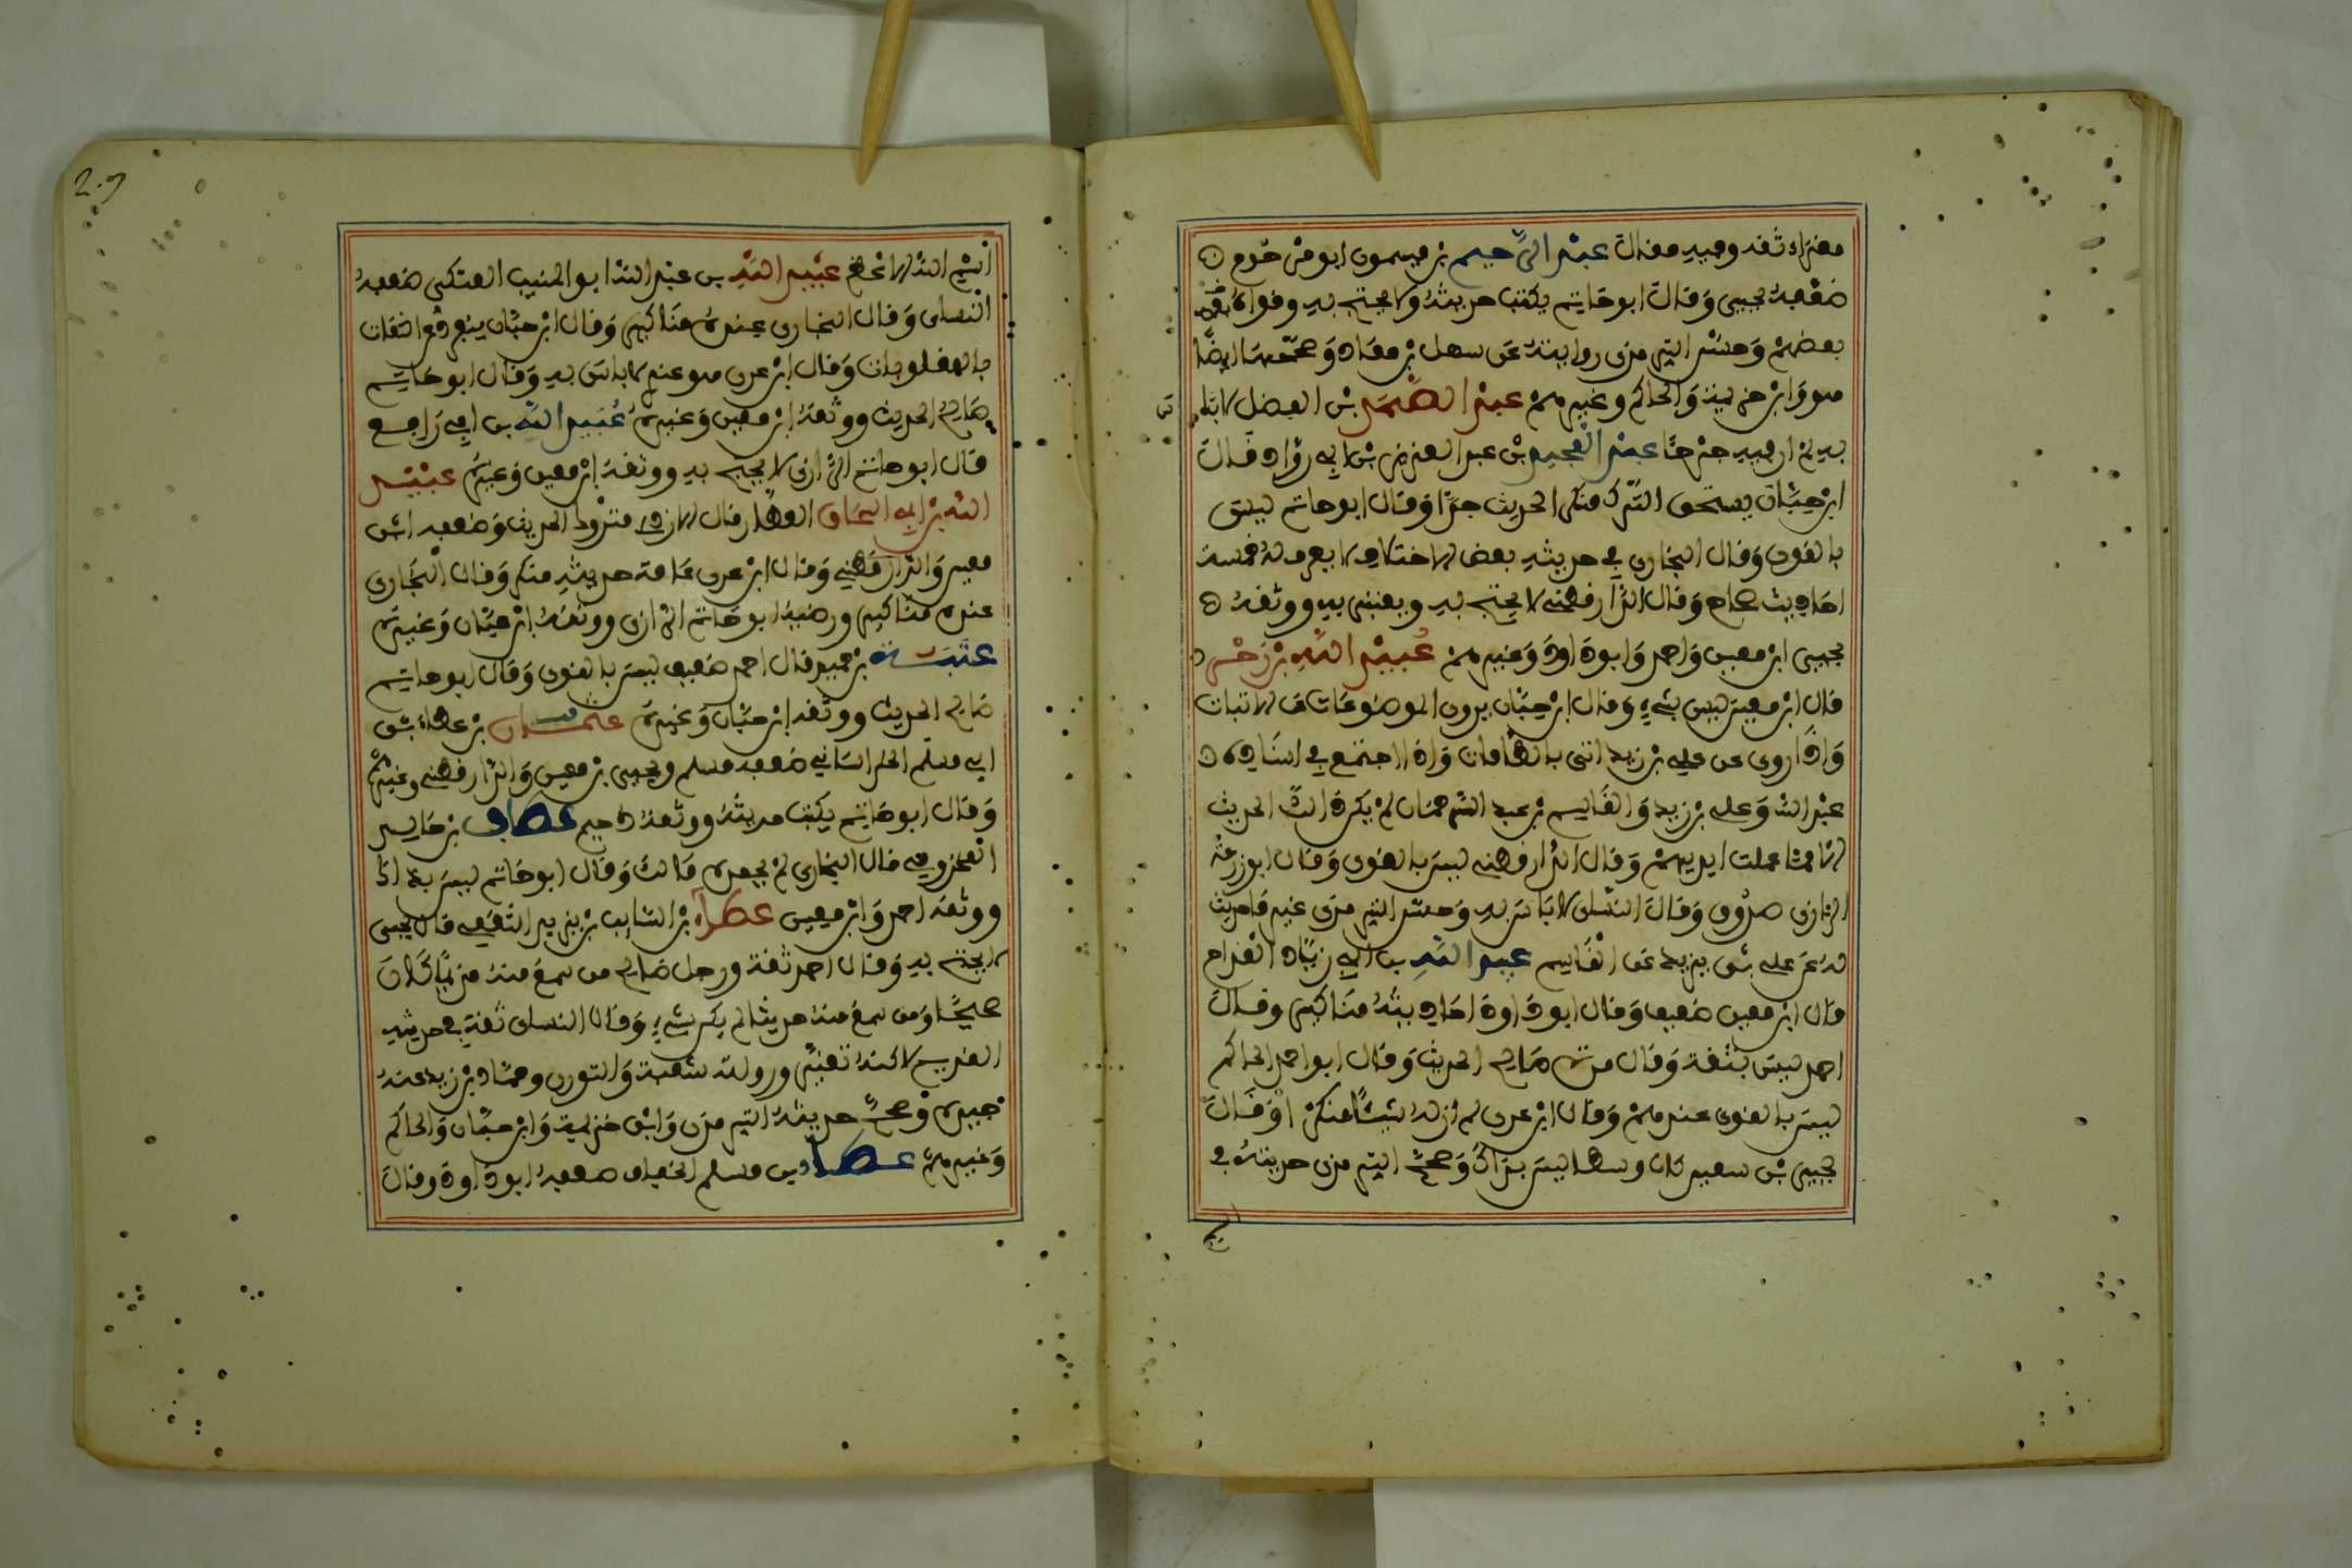 مغراء ثقة وفيه مقال عبد الرحيم بن ميمون ابو مرحوم
ضعفه يحيى وقال ابو حاتم يكتب حديثه ولا يحتج به وقواه
بعضهم وحسن الترمذي روايته عن سهل بن معاذ وصححها ايضا
هو وابن خزيمة والحاكم وغيرهم عبد الصمد بن الفضل لا باس
به لم ار فيه جرحا عبد المجيد بن عبد العزيز بن ابي رواد قال
ابن حبان يستحق الترك منكر الحديث جدا وقال ابو حاتم ليس
بالقوي وقال البخاري في حديثه بعض الاختلاف لا يعرف له خمسة
احاديث صحاح وقال الدارقطني لا يحتج به ويعتبر به ووثقه
يحيى ابن معين واحمد وابو داود وغيرهم عبيد الله بن زحر
قال ابن معين ليس بشيء وقال ابن حبان يروي الموضوعات عن الاثبات
واذا روى عن علي بن زيد اتى بالطامات واذا اجتمع في اسناده
عبد الله وعلي بن زيد والقاسم بن عبد الرحمان لم يكن ذالك الحديث
الا مما عملت ايديهم وقال الدارقطني ليس بالقوي وقال ابو زرعة
الرازي صدوق وقال النسائي لا باس به وحسن الترمذي غير ما حديث
له عن علي بن يزيد عن القاسم عبيد الله بن ابي زياد القداح
قال ابن معين ضعيف وقال ابو داود احاديثه مناكير وقال
احمد ليس بثقة وقال مرة صالح الحديث وقال ابو احمد الحاكم
ليس بالقوي عندهم وقال ابن عدي لم ار له شيئا منكرا وقال
يحيى بن سعيد كان وسطا ليس بذاك وصحح الترمذي حديثه في
اسم
اسم الله الاعظم عبيد الله بن عبد الله ابو المنيب العتكي ضعفه
النسائي وقال البخاري عنده مناكير وقال ابن حبان ينفرد عن الثقات
بالمقلوبات وقال ابن عدي هو عندي لا باس به وقال ابو حاتم
صالح الحديث ووثقه ابن معين وغيره عبيد الله بن ابي رافع
قال ابو حاتم الرازي لا يحتج به ووثقه ابن معين وغيره عتيق
الله بن ابي اسحاق العطار قال الازدي متروك الحديث وضعفه ابن
معين والدارقطني وقال ابن عدي عامة حديثه منكر وقال البخاري
عنده مناكير ورضيه ابو حاتم الرازي ووثقه ابن حبان وغيره
عتبة بن حميد قال احمد ضعيف ليس بالقوي وقال ابو حاتم
صالح الحديث ووثقه ابن حبان وغيره عثمان بن عطاء بن
ابي مسلم الخراساني ضعفه مسلم ويحيى بن معين والدارقطني وغيرهم
وقال ابو حاتم يكتب حديثه ووثقه دحيم عطاف بن خالد
المخزومي قال البخاري لم يحمده مالك وقال ابو حاتم ليس بذاك
ووثقه احمد وابن معين عطاء بن السائب بن يزيد الثقفي قال يحيى
لا يحتج به وقال احمد ثقة ورجل صالح من سمع منه قديما كان
صحيحا ومن سمع منه حديثا لم يكن بشيء وقال النسائي ثقة في حديثه
القديم لاكنه تغير ورواية شعبة والثوري وحماد بن زيد عنه
جيدة وصحح حديثه الترمذي وابن خزيمة وابن حبان والحاكم
وغيرهم عطاء بن مسلم الخفاف ضعفه ابو داود وقال